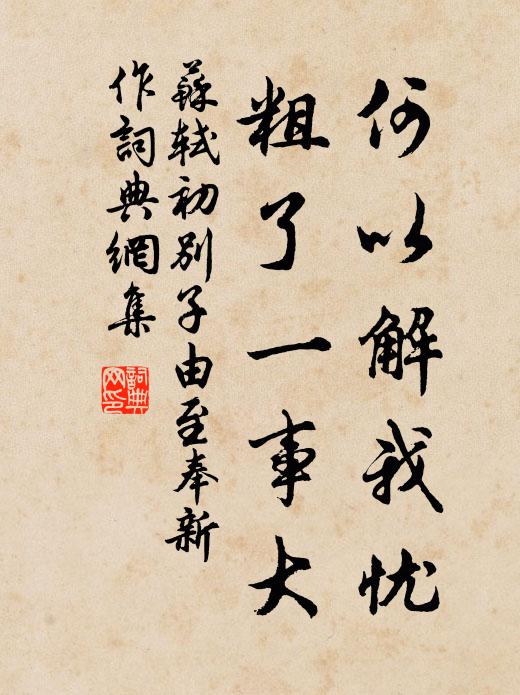 何以解我忧
粗了一事大
蘇軾初别子由至奉新
作詞典網集
詞典网印